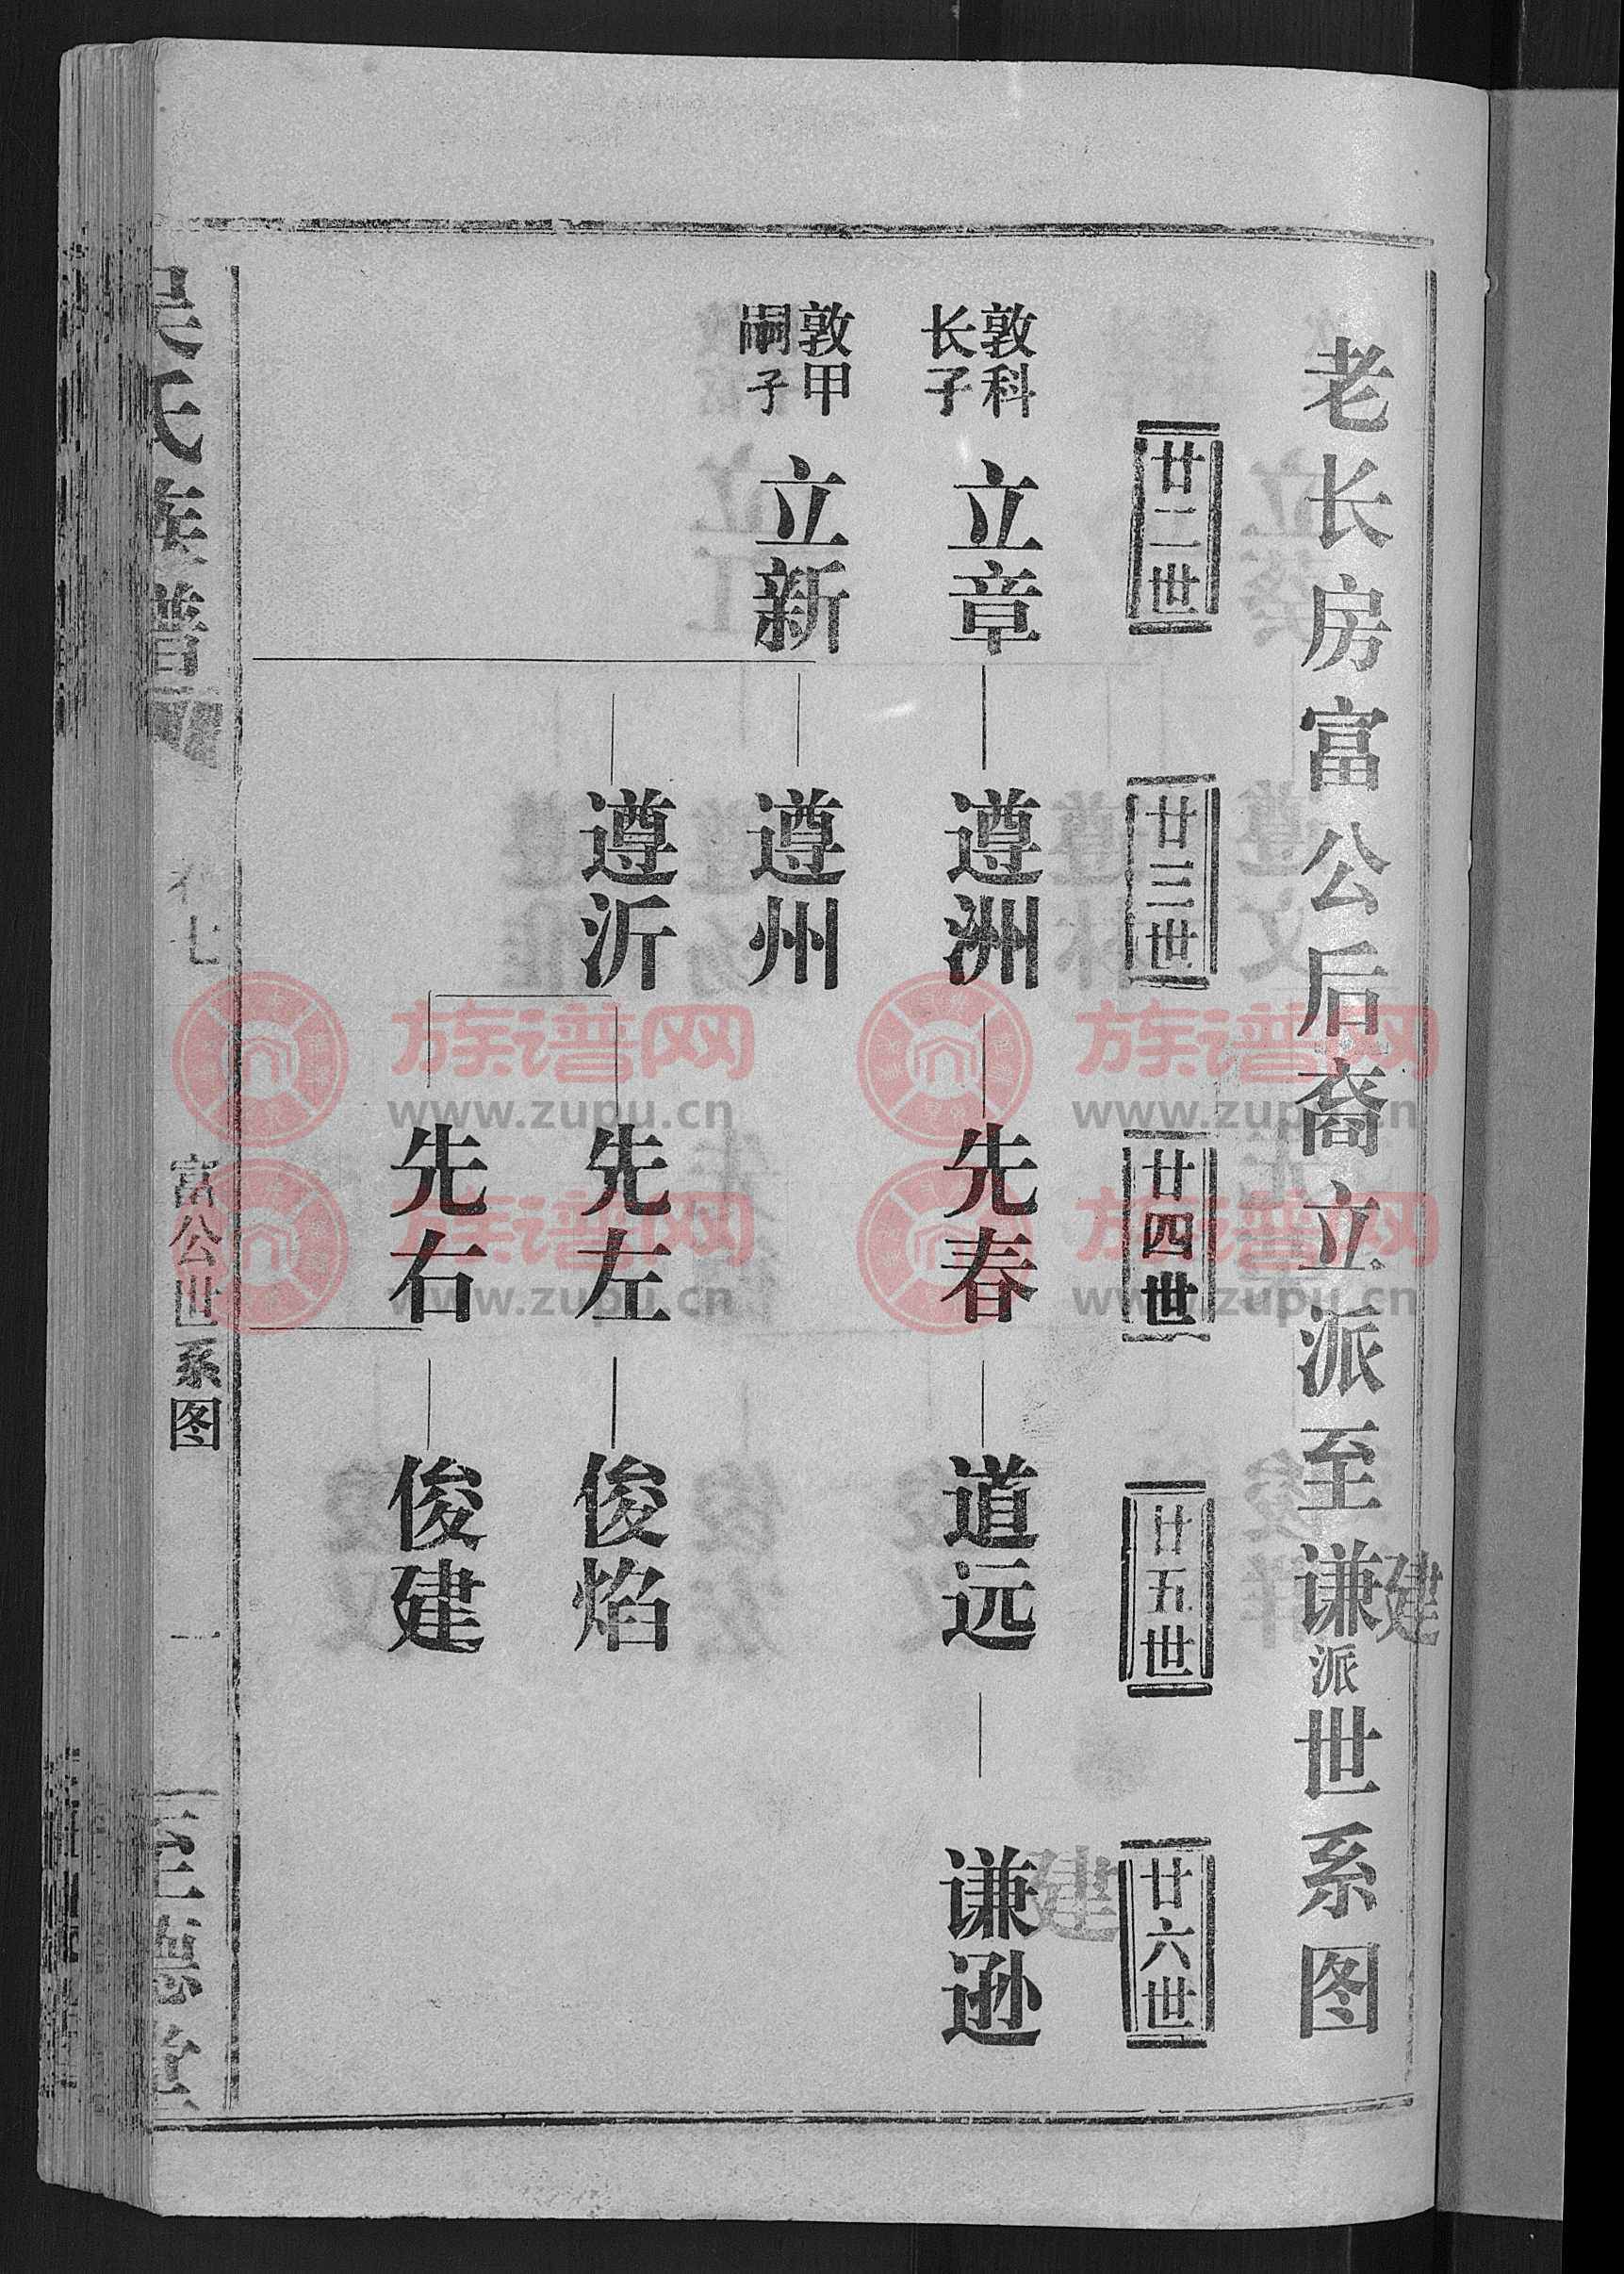 老长房富公后裔立派至谦建派世系图
廿二世
廿三世
廿四世
廿五世
廿六世
敦科
长子
立章
遵洲
先春
道远
谦逊
建
敦甲
嗣子
立新
遵州
遵沂
先左
俊焰
先右
俊建
吴氏族谱
卷七
富公世系图
一
至德堂
族谱网
www.zupu.cn
族谱网
www.zupu.cn
族谱网
www.zupu.cn
族谱网
www.zupu.cn